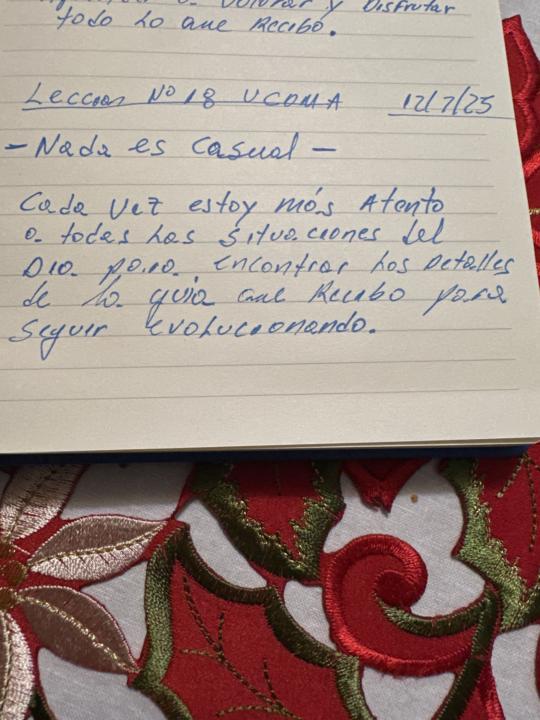 y Disfrutar
todo lo que Recibo.
Leccion Nº 18 UCDMA 12/7/25
- Nada es Casual -
Cada Vez estoy más Atento
a todas las Situaciones del
Dia para encontrar los Detalles
de la guia que Recibo para
Seguir evolucionando.